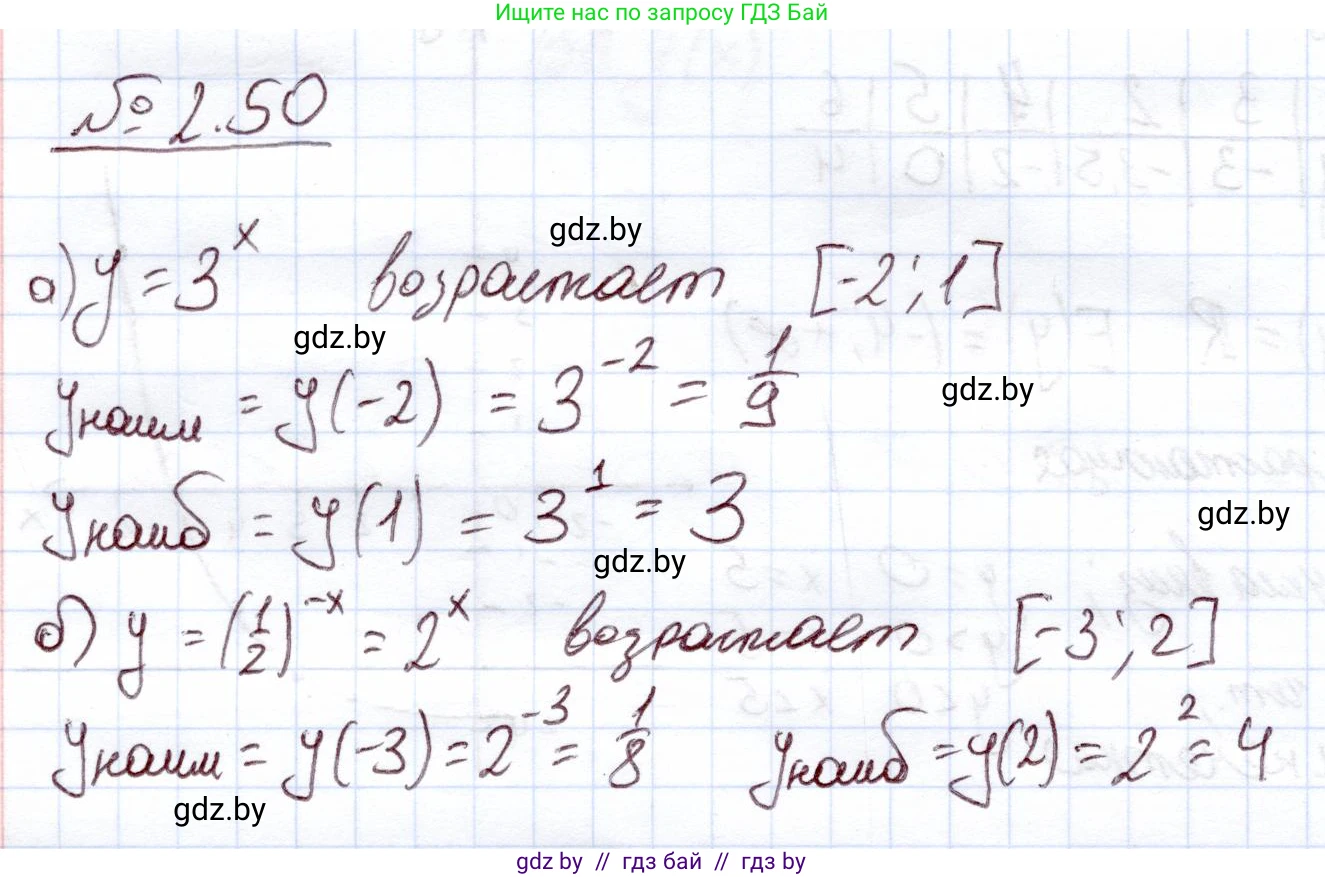 Ищите нас по запросу ГДЗ Бай
№ 2.50
а) y = 3^x возрастает [-2; 1]
yнаим = y(-2) = 3^-2 = 1/9
yнаиб = y(1) = 3^1 = 3
б) y = (1/2)^-x = 2^x возрастает [-3; 2]
yнаим = y(-3) = 2^-3 = 1/8 yнаиб = y(2) = 2^2 = 4
gdz.by
gdz.by
gdz.by
gdz.by
gdz.by
gdz.by
gdz by // гдз бай // гдз by